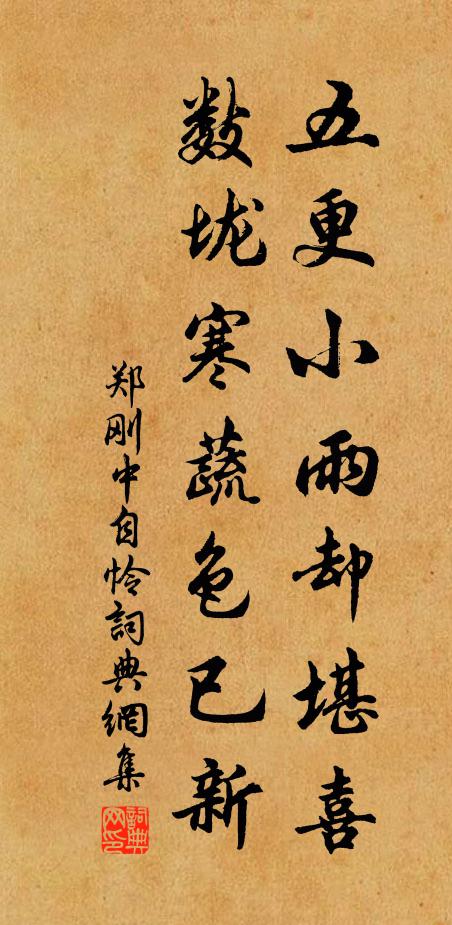 五更小雨却堪喜
数垅寒蔬色已新
郑刚中自怜詞典網集
詞典网印